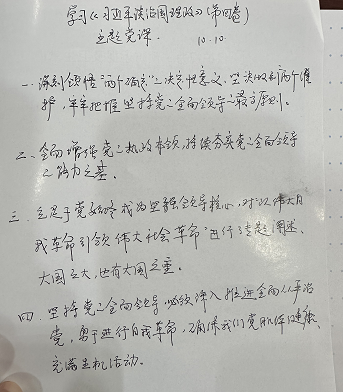 学习《习近平谈治国理政》(第四卷)
主题党课. 10.10
一、深刻领悟"两个确立"之决定性意义、坚决做到两个维
护,牢牢把握坚持党之全面领导之最高原则。
二、全面增强党之执政本领,持续夯实党之全面领导
之能力之基。
三、立足于党始终成为坚强领导核心,对"以伟大自
我革命引领伟大社会革命"进行专题阐述.
大国之大,也有大国之重。
四、坚持党之全面领导,必须深入推进全面从严治
党,勇于进行自我革命,确保我们党肌体健康、
充满生机活动.